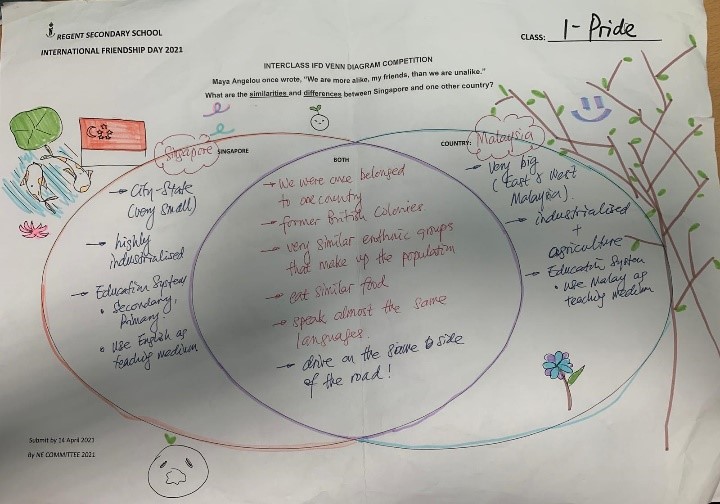 REGENT SECONDARY SCHOOL
INTERNATIONAL FRIENDSHIP DAY 2021
CLASS: 1- Pride
INTERCLASS IFD VENN DIAGRAM COMPETITION
Maya Angelou once wrote, "We are more alike, my friends, than we are unalike."
What are the similarities and differences between Singapore and one other country?
Singapore SINGAPORE
→ City-State
(very small)
→ highly
industrialised
→ Education System
• Secondary,
Primary.
• Use English as
teaching medium
BOTH
→ We were once belonged
to one country
→ former British Colonies.
→ very similar enthnic groups
that make up the population
→ eat similar food
→ speak almost the same
languages.
→ drive on the same side
of the road!
COUNTRY: Malaysia
→ Very big
(East & West
Malaysia).
→ industrialised
+
agriculture
→ Education System
• use Malay as
teaching medium
Submit by 14 April 2021
By NE COMMITTEE 2021